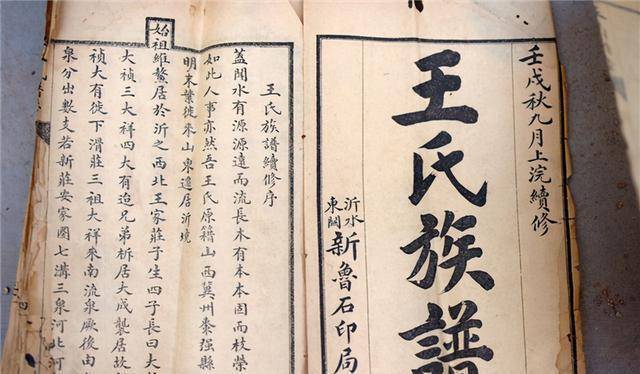 壬戌秋九月上浣續修
王氏族譜
沂水
東關
新魯石印局
王氏族譜續修序
蓋聞水有源源遠而流長木有本本固而枝榮
如此人事亦然吾王氏原籍山西冀州棗強縣
明末業徙來山東遑居沂境
始祖維鰲居於沂之西北王家莊子生四子長曰大
大禎三大祥四大有迨兄弟析居大成襲居故
禎大有徙下滑莊三祖大祥來南流泉厥後由
泉分出數支若新莊安家圈七溝三泉河北河